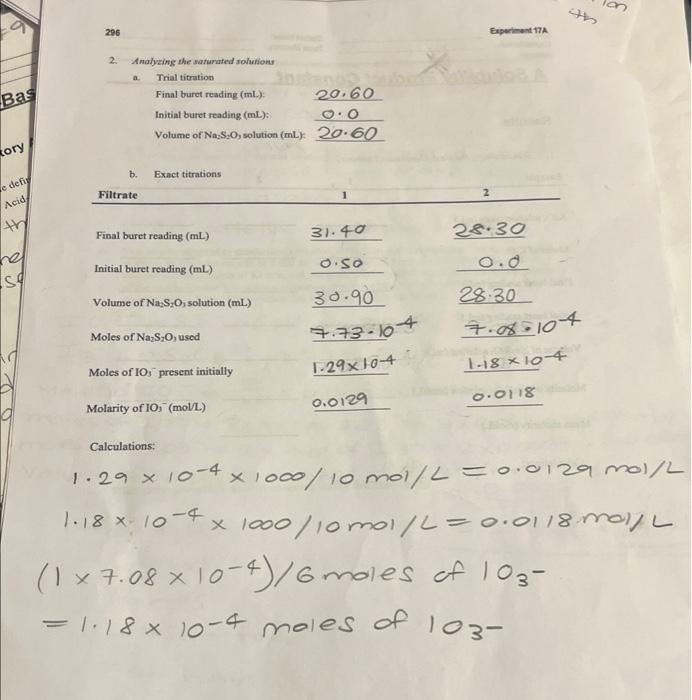 296 Experiment 17A
2. Analyzing the saturated solutions
a. Trial titration
Final buret reading (mL): 20.60
Initial buret reading (mL): 0.0
Volume of Na₂S₂O₃ solution (mL): 20.60
b. Exact titrations
Filtrate 1 2
Final buret reading (mL) 31.40 28.30
Initial buret reading (mL) 0.50 0.0
Volume of Na₂S₂O₃ solution (mL) 30.90 28.30
Moles of Na₂S₂O₃ used 7.73·10⁻⁴ 7.08·10⁻⁴
Moles of IO₃⁻ present initially 1.29×10⁻⁴ 1.18×10⁻⁴
Molarity of IO₃⁻ (mol/L) 0.0129 0.0118
Calculations:
1.29 × 10⁻⁴ × 1000/10 mol/L = 0.0129 mol/L
1.18 × 10⁻⁴ × 1000/10 mol/L = 0.0118 mol/L
(1 × 7.08 × 10⁻⁴)/6 moles of IO₃⁻
= 1.18 × 10⁻⁴ moles of IO₃⁻
Bas
tory
e defin
Acid
th